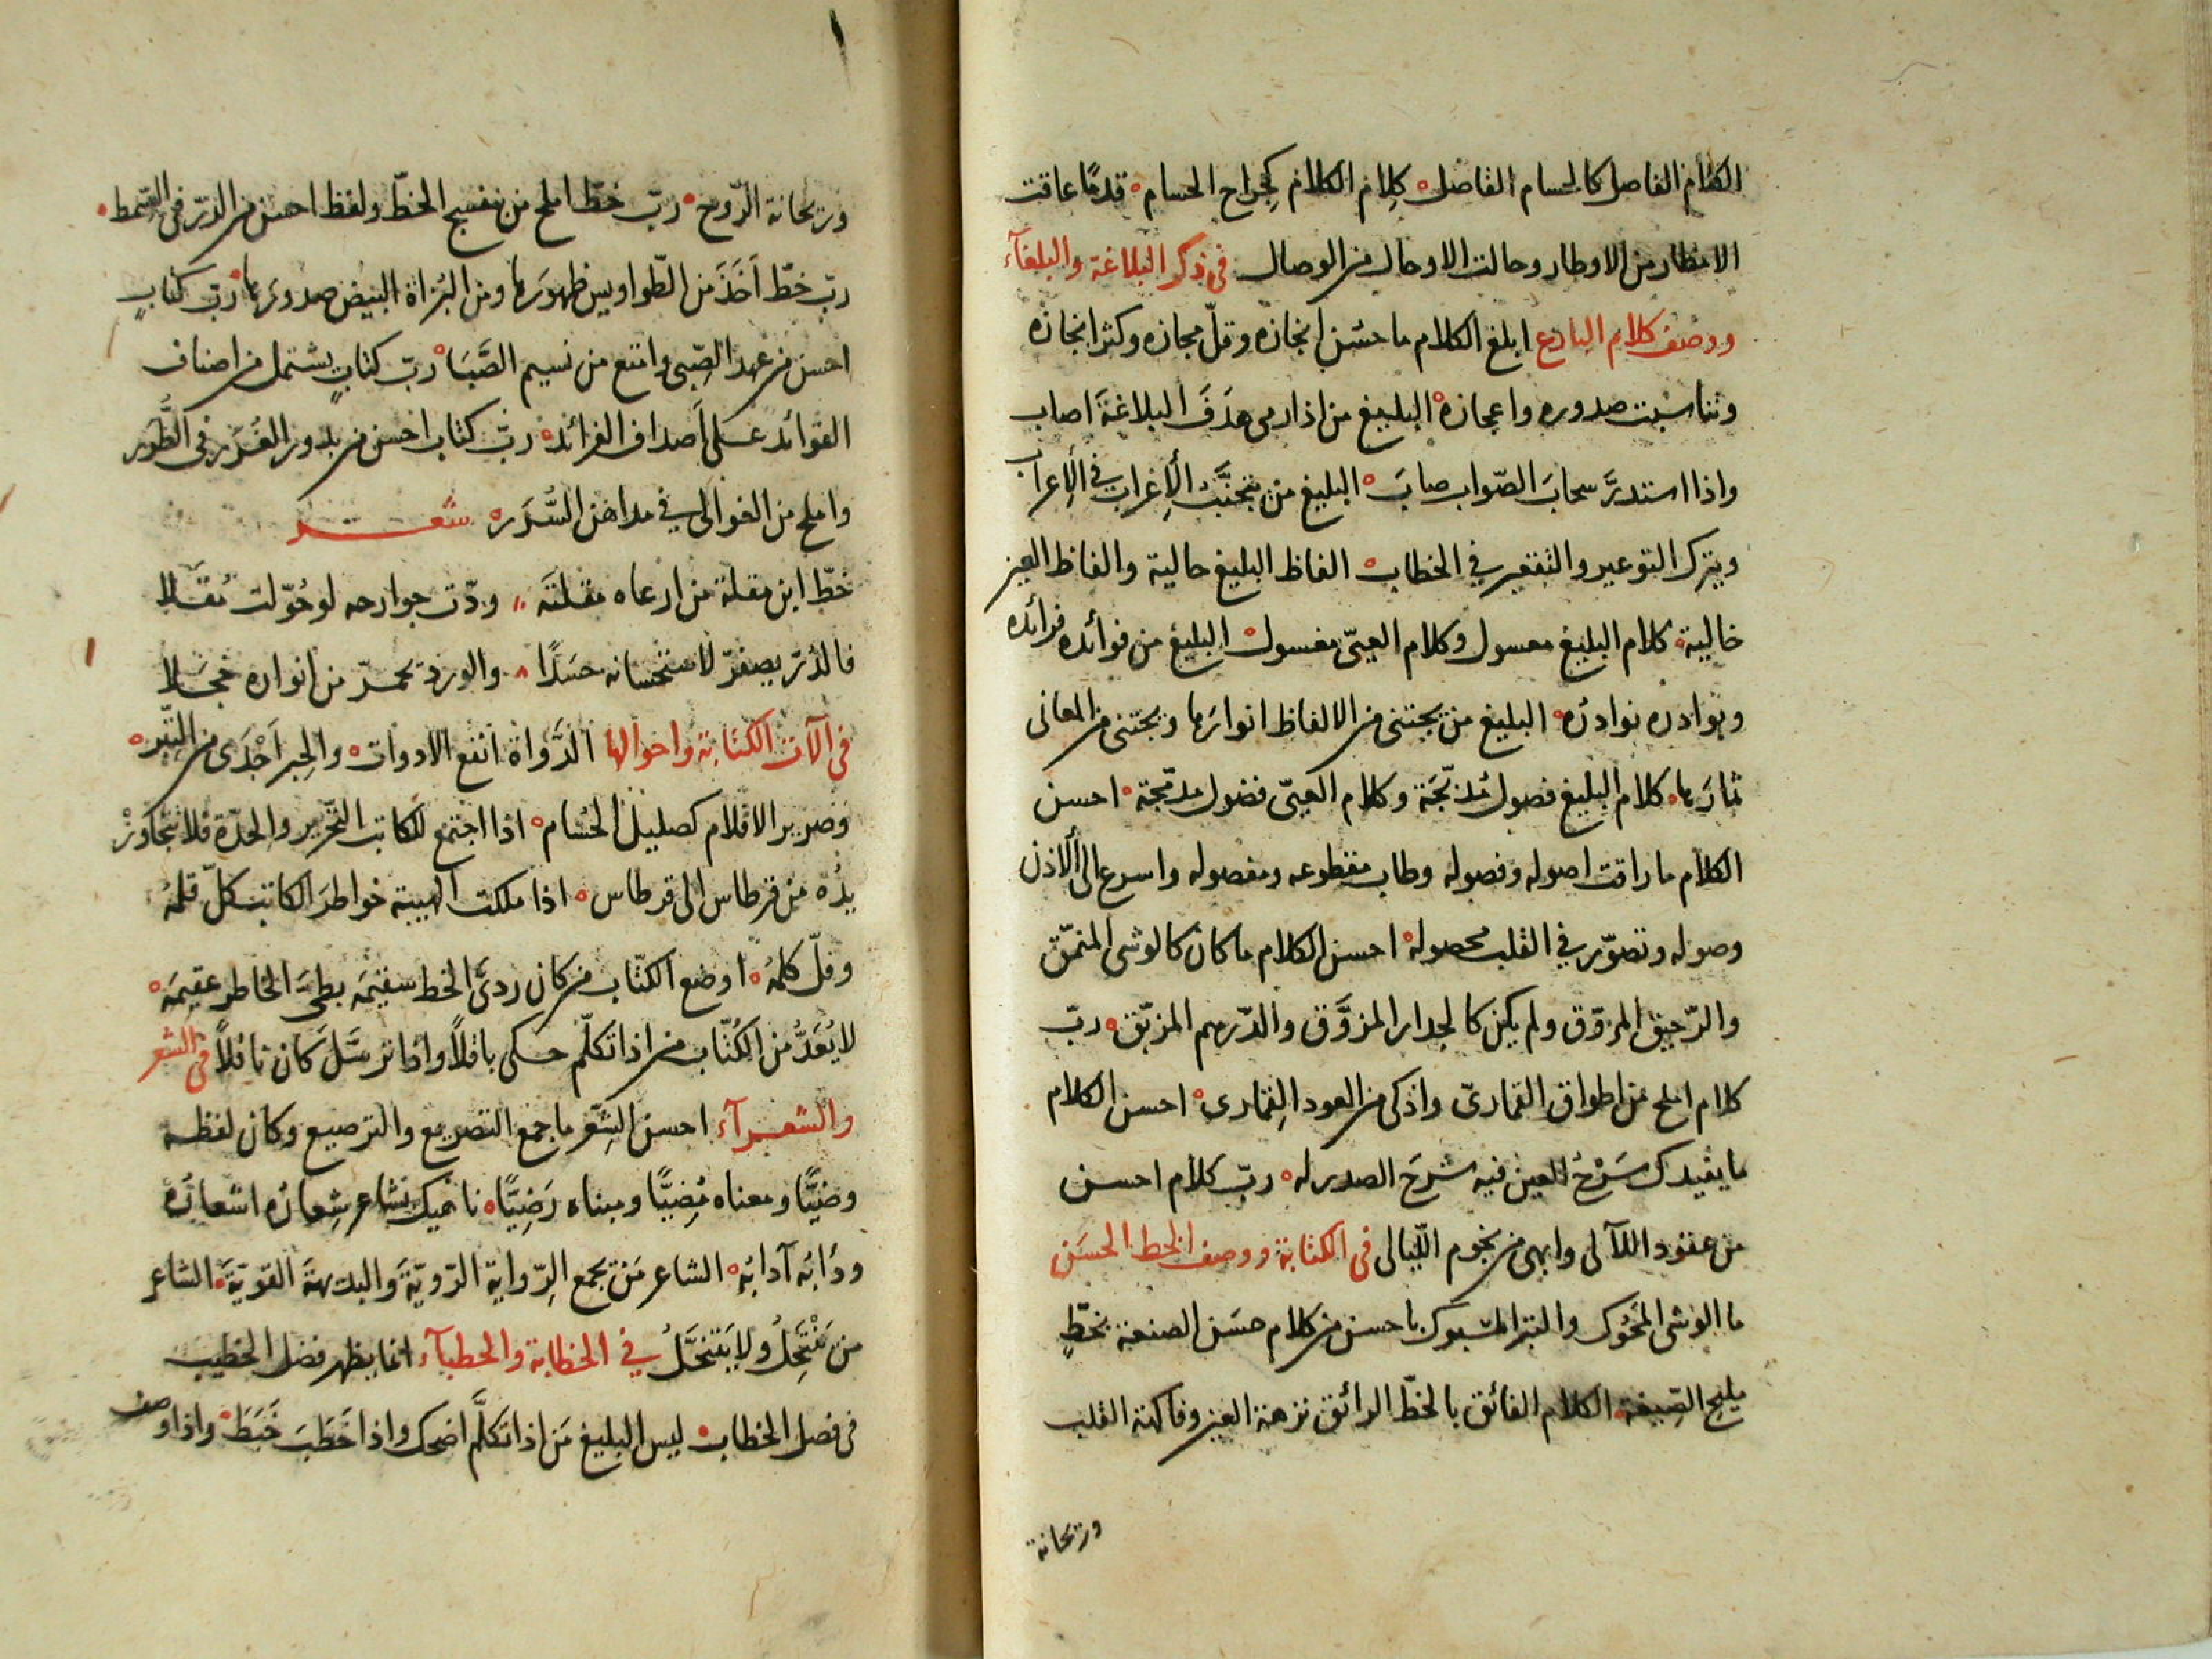 الكلام الفاصل كالحسام القاصل كلام الكلام كجراح الحسام قدمًا عاقت
الامطار من الاوطار وحالت الاوحال من الوصال في ذكر البلاغة والبلغآء
ووصف كلام البارع ابلغ الكلام ما حسن ايجازه وقلّ مجازه وكثر اعجازه
وتناسبت صدوره واعجازه البليغ من اذا رمى هدَفَ البلاغةَ اصاب
واذا استدرَّ سحابَ الصّواب صابَ البليغ من يتجنَّبُ الإغراب في الإعراب
ويترك التوعير والتقعير في الخطاب الفاظ البليغ حالية والفاظ العيّ
خالية كلام البليغ معسول وكلام العيىّ مغسول البليغ من فوائده فرائده
وبوادره نوادره البليغ من يجتنى من الالفاظ انوارَها ويجتنى من المعانى
ثمارَها كلام البليغ فصول مُدبّجَة وكلام العيىّ فضول مدمّجة احسن
الكلام ما راقت اصوله وفصوله وطاب مقطوعه ومفصوله واسرع الى الاذن
وصوله وتصوّر في القلب محصوله احسن الكلام ما كان كالوشى المنمّق
والرّحيق المروّق ولم يكن كالجدار المزوَّق والدّرهم المزبّق ربّ
كلام املح من اطواق القمارىّ واذكى من العود القِمارى احسن الكلام
ما يفيدك سَرْحُ العين فيه شرحَ الصدر له ربّ كلام احسن
من عقود اللآلى وابهى من نجوم الليالى في الكتابة ووصف الخط الحسَن
ما الوشى المحُوك والتبر المسبوك باحسن من كلام حسَن الصنعة بخطٍّ
مليح الصِّيغة الكلام الفائق بالخطّ الرائق نزهة العين وفاكهة القلب
وريحانة
وريحانة الرّوح ربّ خطّ املح من بنفسج الخطّ ولفظ احسن من الدّر في السّمط
ربّ خطّ اَخَذَ من الطّواويس ظهورَها ومن البُزاة البيض صدورَها ربّ كتابٍ
احسن من عهد الصّبى وامتع من نسيم الصَّبَا ربّ كتابٍ يشتمل من اصناف
الفوائد على اَصداف الفرائد ربّ كتاب احسن من بدور الغُرَر في الطُّرَر
واملح من الغوالى في مداهن السُّرَر شعر
خطّ ابن مقلة من ارعاه مقلتَه ودّت جوارحه لو حُوّلت مُقَلا
فالدّرّ يصفرّ لاستحسانه حسَدًا والورد يحمرّ من انواره خجَلا
في آلات الكتابة واحوالها الدَّواة انفع الادوات والحِبر اَجْدَى من التّبر
وصرير الاقلام كصليل الحُسام اذا اجتمع للكاتب التّحرير والحدّة فلا تتجاوزْ
يدُه من قرطاس الى قرطاس اذا ملكت الهيبة خواطرَ الكاتب كلّ قلمُه
وفلّ كلمُه اوضع الكتّاب من كان ردىَّ الخط سقيمَه بطىَّ الخاطر عقيمَه
لا يُعَدُّ من الكُتّاب من اذا تكلّم حكى باقلاً واذا ترسَّل كان ناقلاً في الشعر
والشعرآء احسن الشِّعر ما جمع التصريع والترصيع وكان لفظه
وضيًّا ومعناه مُضِيًّا ومبناه رَضِيًّا ناهيك بشاعر شِعارُه اشعارُه
ودَابُه آدابُه الشاعر مَن يجمع الرّواية الرّويّة والبديهة القويّة الشاعر
من يَنْتَحِلُ ولا يَتنحَّلُ في الخطابة والخطبآء انما يظهر فضل الخطيب
في فصل الخطاب ليس البليغ مَن اذا تكلَّم اضحك واذا خَطَبَ خَبَطَ واذا وصف